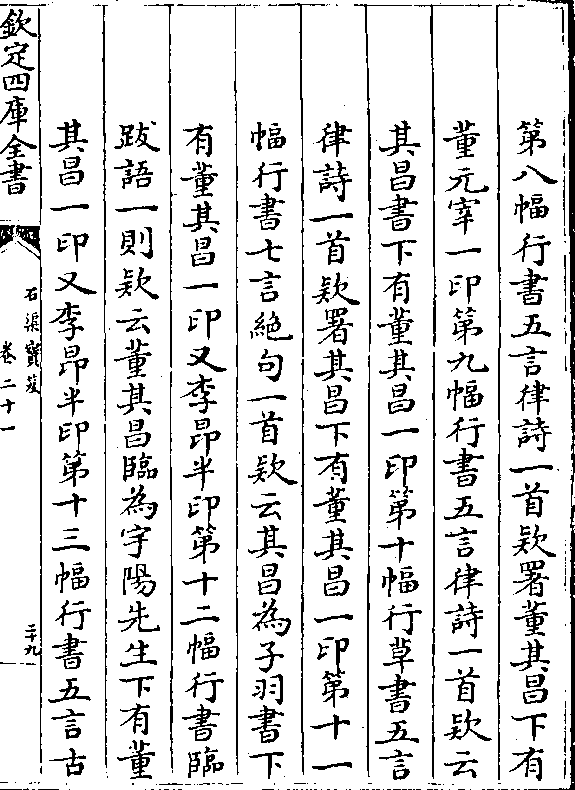 第八幅行書五言律詩一首欵署董其昌下有
董元宰一印第九幅行書五言律詩一首欵云
其昌書下有董其昌一印第十幅行草書五言
律詩一首欵署其昌下有董其昌一印第十一
幅行書七言絶句一首欵云其昌為子羽書下
有董其昌一印又李昂半印第十二幅行書臨
跋語一則欵云董其昌臨為宇陽先生下有董
其昌一印又李昂半印第十三幅行書五言古
欽定四庫全書
石渠寳笈
卷二十一
三十九